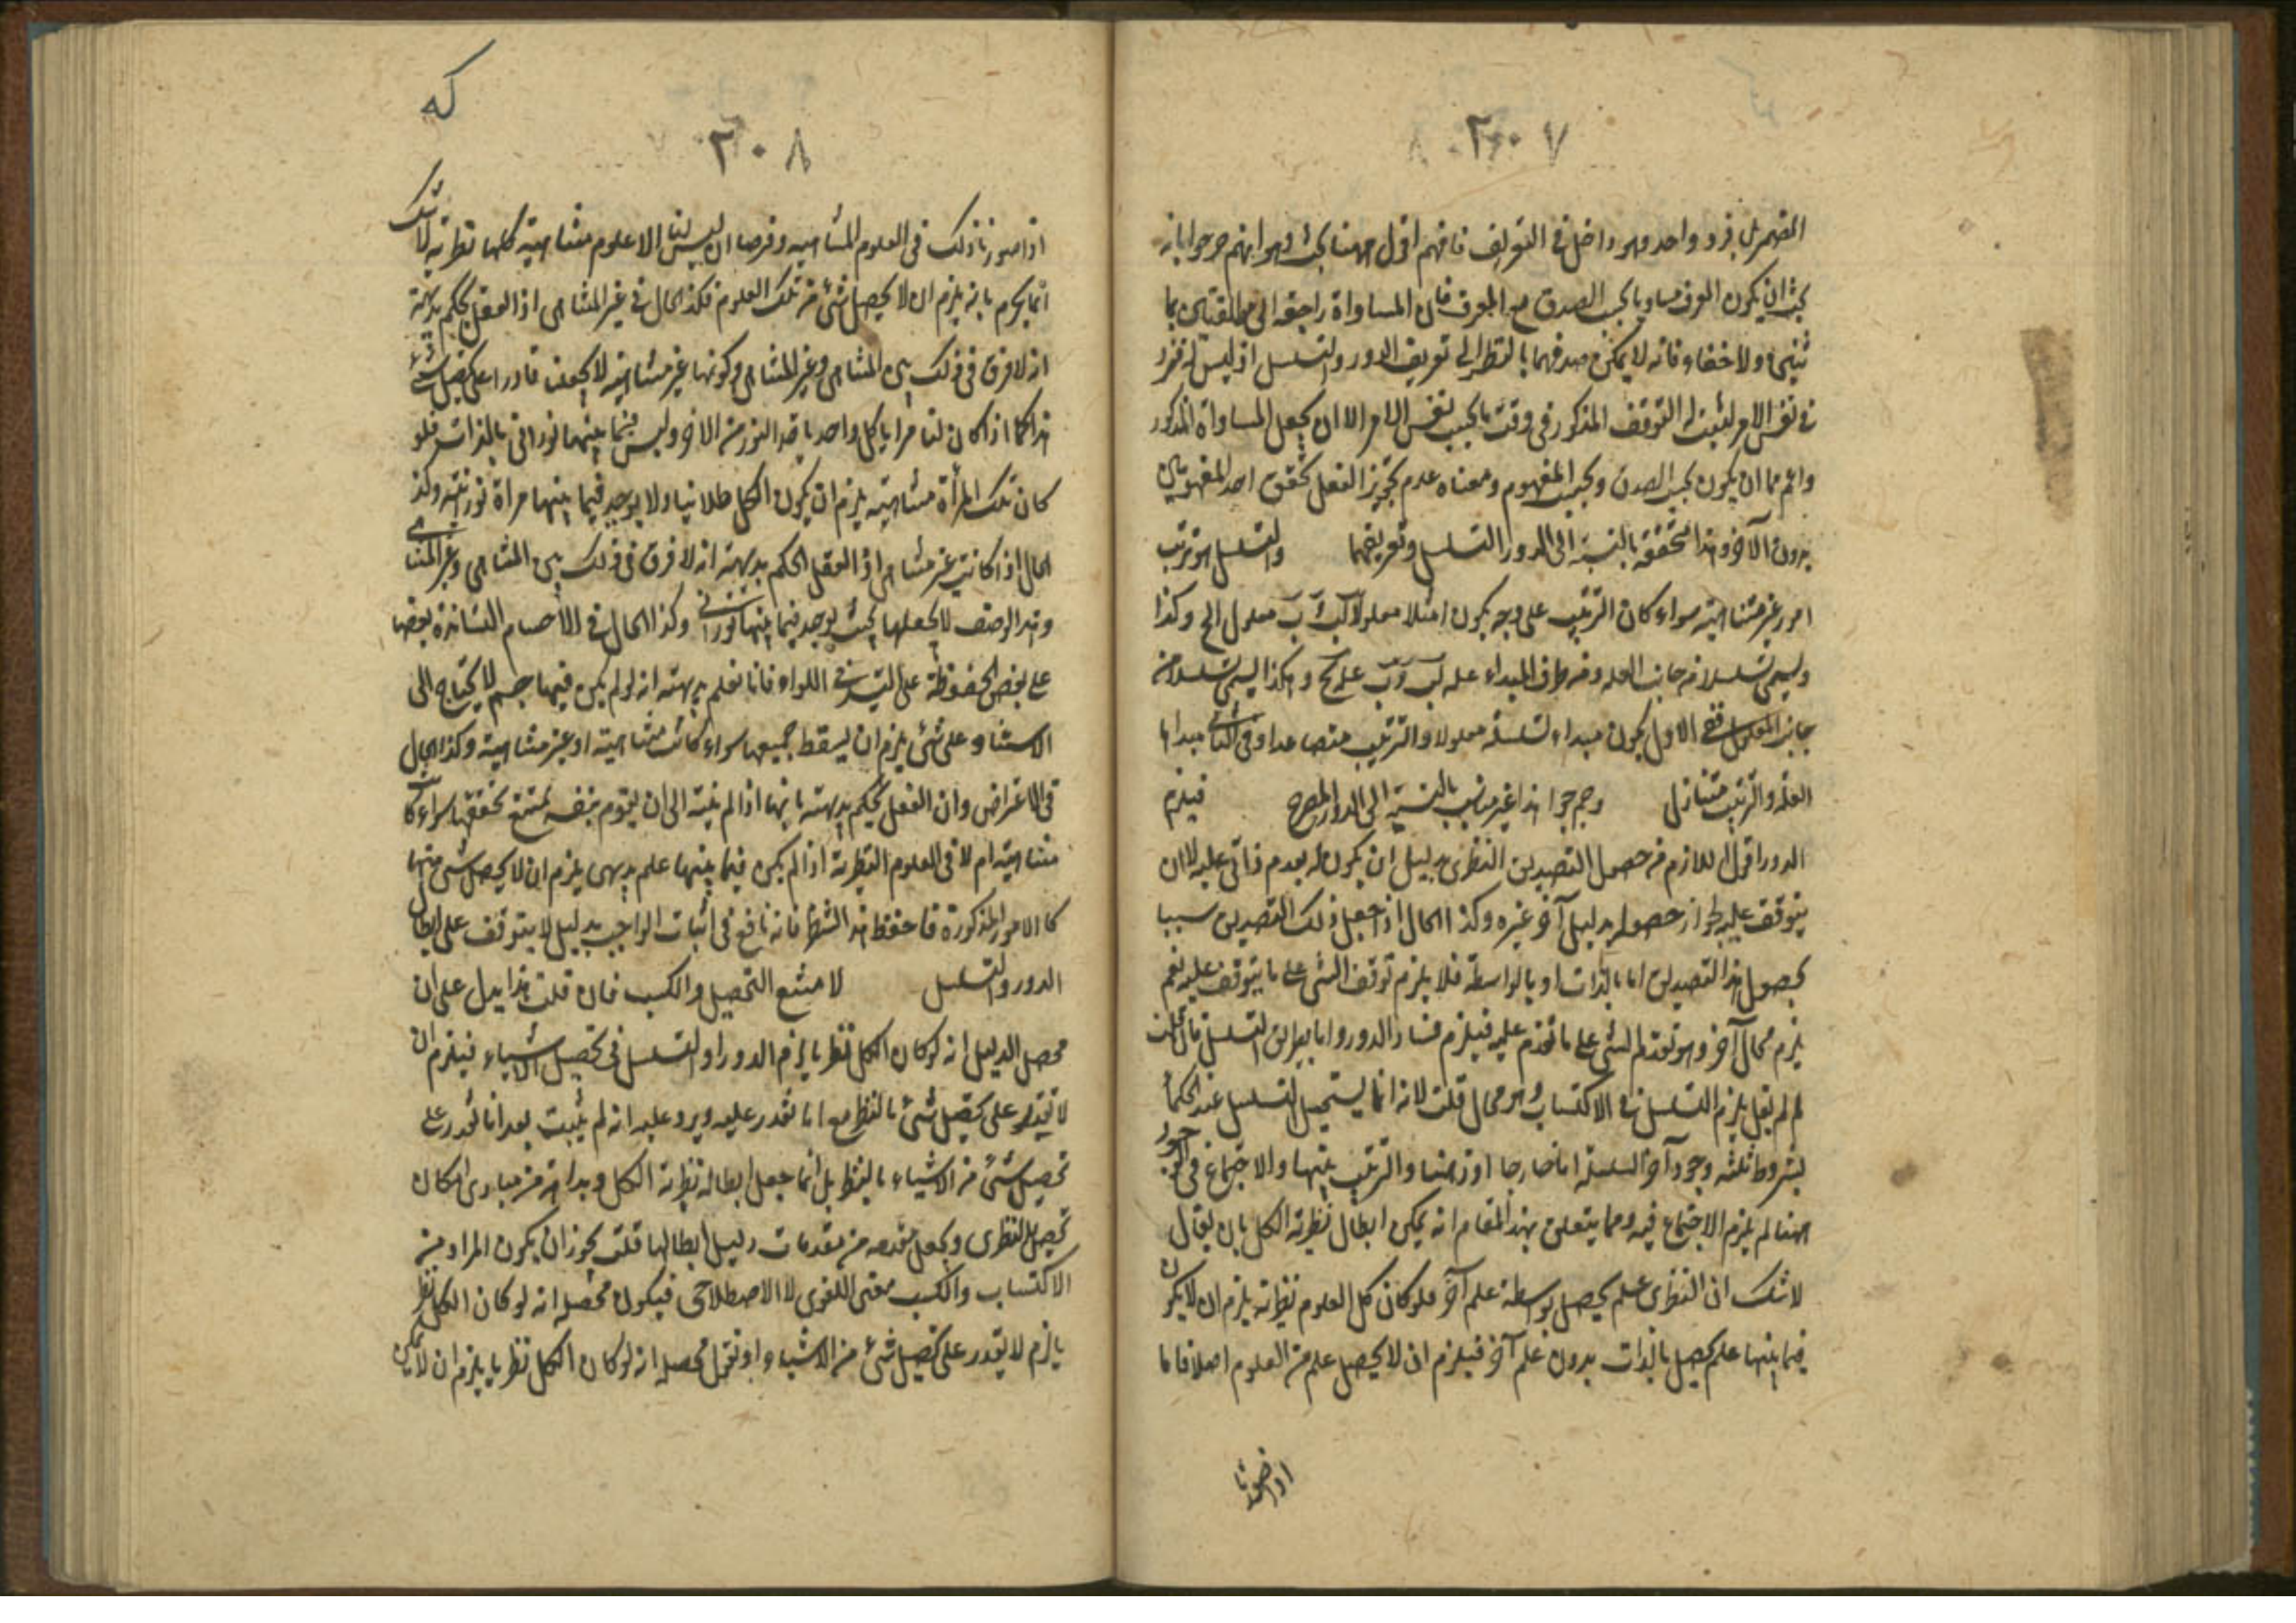 ٢٠٧
المضمر بل فرد واحد وهو داخل في التعريف فافهم اقول ههنا بحث وهو انهم صرحوا بانه
يجب ان يكون المعرف مساويا بحسب الصدق مع المعرف فان المساواة راجعة الى مطلقتين
ولا خفاء فانه لا يمكن صدقهما بالنظر الى تعريف الدور والتسلسل اذ ليس له فرد
في نفس الامر ليثبت له التوقف المذكور في وقت ما بحسب نفس الامر الا ان يجعل المساواة المذكور
واعم مما ان يكون بحسب الصدق وبحسب المفهوم ومعناه عدم تجويز العقل تحقق احد المفهومين
بدون الآخر وهذا متحققة بالنسبة الى الدور التسلسل وتعريفهما والتسلسل هو ترتب
امور غير متناهية سواء كان الترتيب على وجه يكون امثلا معلولا ب معلول الج وكذا
ويسمى تسلسلا من جانب العله ومن طرف المبداء عله وهكذا ليسمى تسلسلا من
جانب المعلول ففي الاول يكون مبداء لسلسلة معلولا والترتيب متصاعدا وفي الثاني مبداها
العلة والترتيب متنازل هذا غير مناسب بالنسبة الى الدور المصرح فيلزم
الدور اقول اللازم من حصول التصديق النظري بدليل ان يكون له بعدم ذاتي عليه لا ان
يتوقف عليه لجواز حصوله بدليل آخر غيره وكذا الحال اذ جعل ذلك التصديق سببا
بحصول هذا التصديق اما بالذات او بالواسطة فلا يلزم توقف الشئ على ما يتوقف عليه نعم
يلزم محال آخر وهو تقدم الشئ على ما تقدم عليه فيلزم فساد الدور واما ببراهن التسلسل فان قلت
لم لم يقل يلزم التسلسل في الاكتساب وهو محال قلت لانه انما يستحيل التسلسل عند الحكماء
بشروط ثلثه وجود آحاد السلسلة اما خارجا او ذهنا والترتيب بينها والاجتماع في الوجود
ههنا لم يلزم الاجتماع فيه ومما يتعلق بهذا المقام انه يمكن ابطال نظرية الكل بان يقال
لا شك ان النظري علم يحصل بواسطة علم آخر فلو كان كل العلوم نظرية يلزم ان لا يكون
فيما بينها علم يحصل بالذات بدون علم آخر فيلزم ان لا يحصل علم من العلوم اصلا فانا
اذا صورنا
كه
٢٠٨
اذا صورنا ذلك في العلوم المتناهيه وفرضنا ان ليس لنا الا علوم متناهية كلها نظرية لا شك
انما يحكم بانه يلزم ان لا يحصل شئ من تلك العلوم فكذا الحال في غير المتناهى اذ العقل يحكم بديهة
انه لا فرق في ذلك بين المتناهى وغير المتناهى وكونها غير متناهية لا يجعلنا قادرا على تحصيل شئ
هذا كما اذا كان لنا مرايا كل واحد ياخذ النور من الاخر وليس فيما بينهما نوراني بالذات فلو
كان تلك المرآة متناهية يلزم ان يكون الكل ظلمانيا ولا يوجد فيما بينها مرآة نورانية وكذا
الحال اذا كانت غير متناهي اذ العقل يحكم بديهة انه لا فرق في ذلك بين المتناهى وغير المتناهى
وهذا الوصف لا يجعلها بحيث يوجد فيما بينها نوراني وكذا الحال في الاجسام المتساندة بعضها
على بعض المحفوظة على الهواء فانا نعلم بديهة انه لو لم يكن فيها جسم لا يحتاج الى
الاستناد على شئ يلزم ان يسقط جميعها سواء كانت متناهية او غير متناهية وكذا الحال
في الاعراض وان العقل يحكم بديهة بانها اذا لم ينته الى ان يقوم بنفسه يمتنع تحققها سواء كانت
متناهية ام لا في العلوم النظرية اذا لم يكن فيما بينها علم بديهي يلزم ان لا يحصل شئ منها
كما الامور المذكورة فاحفظ هذا الشرط فانه نافع في اثبات الواجب بدليل لا يتوقف على ابطال
الدور والتسلسل لامتنع التحصيل والكسب فان قلت هذا يدل على ان
محصل الدليل انه لو كان الكل نظريا يلزم الدور او التسلسل في تحصيل الاشياء فيلزم ان
لا نقدر على تحصيل شئ بالنظر مع انا نقدر عليه ويرد عليه انه لم يثبت بعد انا نقدر على
تحصيل شئ من الاشياء بالنظر بل انما جعل ابطاله نظرية الكل وبداهة من مبادى امكان
تحصيل النظري ويجعل مقدمه من مقدمات دليل ابطالها قلت يجوز ان يكون المراد من
الاكتساب والكسب معنى اللغوى لا الاصطلاحى فيكون محصله انه لو كان الكل نظر
يا لزم لا نقدر على تحصيل شئ من الاشياء او نقول محصله انه لو كان الكل نظريا يلزم ان لا يمكن